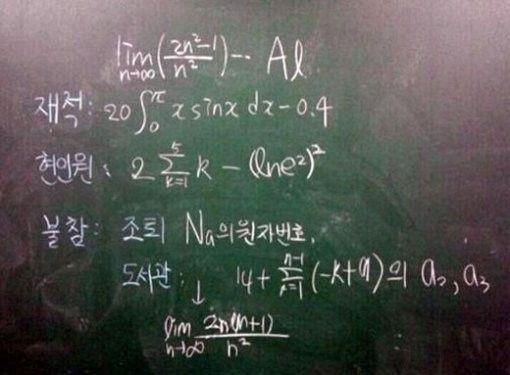 lim n→∞ (2n²-1 / n²) -- Al
재적: 20 ∫₀^π x sinx dx - 0.4
현인원: 2 ∑_{k=1}^{5} k - (lne²)²
불참: 조퇴 Na의원자번호,
도서관: 14 + ∑^{n-1} (-k+9)의 a₂, a₃
↓
lim n→∞ 2n(n+1) / n²